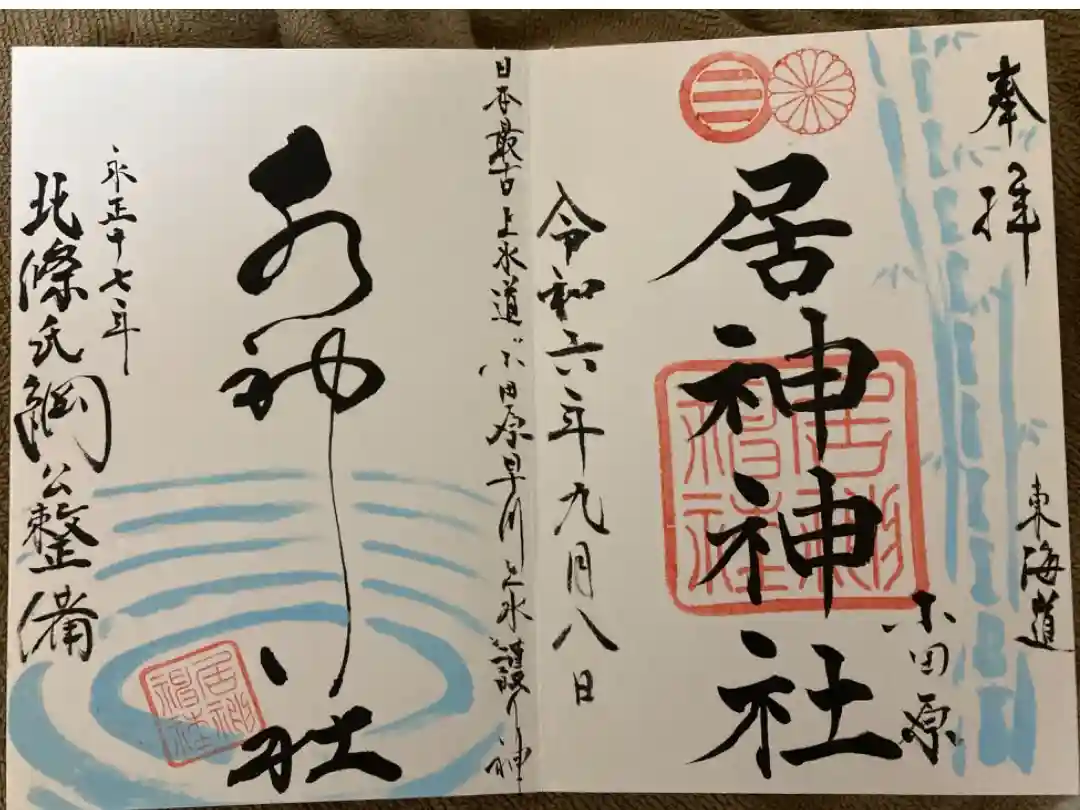 奉拝
東海道
小田原
居神神社
令和六年九月八日
日本最古上水道 小田原早川上水護り神
水神社
永正十七年
北條氏綱公整備
居神神社